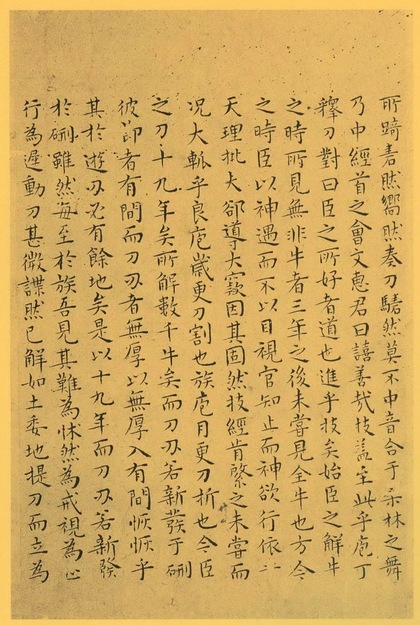 所踦砉然嚮然奏刀騞然莫不中音合于桒林之舞
乃中經首之會文惠君曰譆善哉技盖至此乎庖丁
釋刀對曰臣之所好者道也進乎技矣始臣之解牛
之時所見無非牛者三年之後未嘗見全牛也方今
之時臣以神遇而不以目視官知止而神欲行依
天理批大郤導大窾因其固然技經肯綮之未嘗而
况大軱乎良庖歲更刀割也族庖月更刀折也今臣
之刀十九年矣所解數千牛矣而刀刃若新發于硎
彼節者有間而刀刃者無厚以無厚入有間恢恢乎
其於遊刃必有餘地矣是以十九年而刀刃若新發
於硎雖然每至於族吾見其難為怵然為戒視為止
行為遲動刀甚微謋然已解如土委地提刀而立為